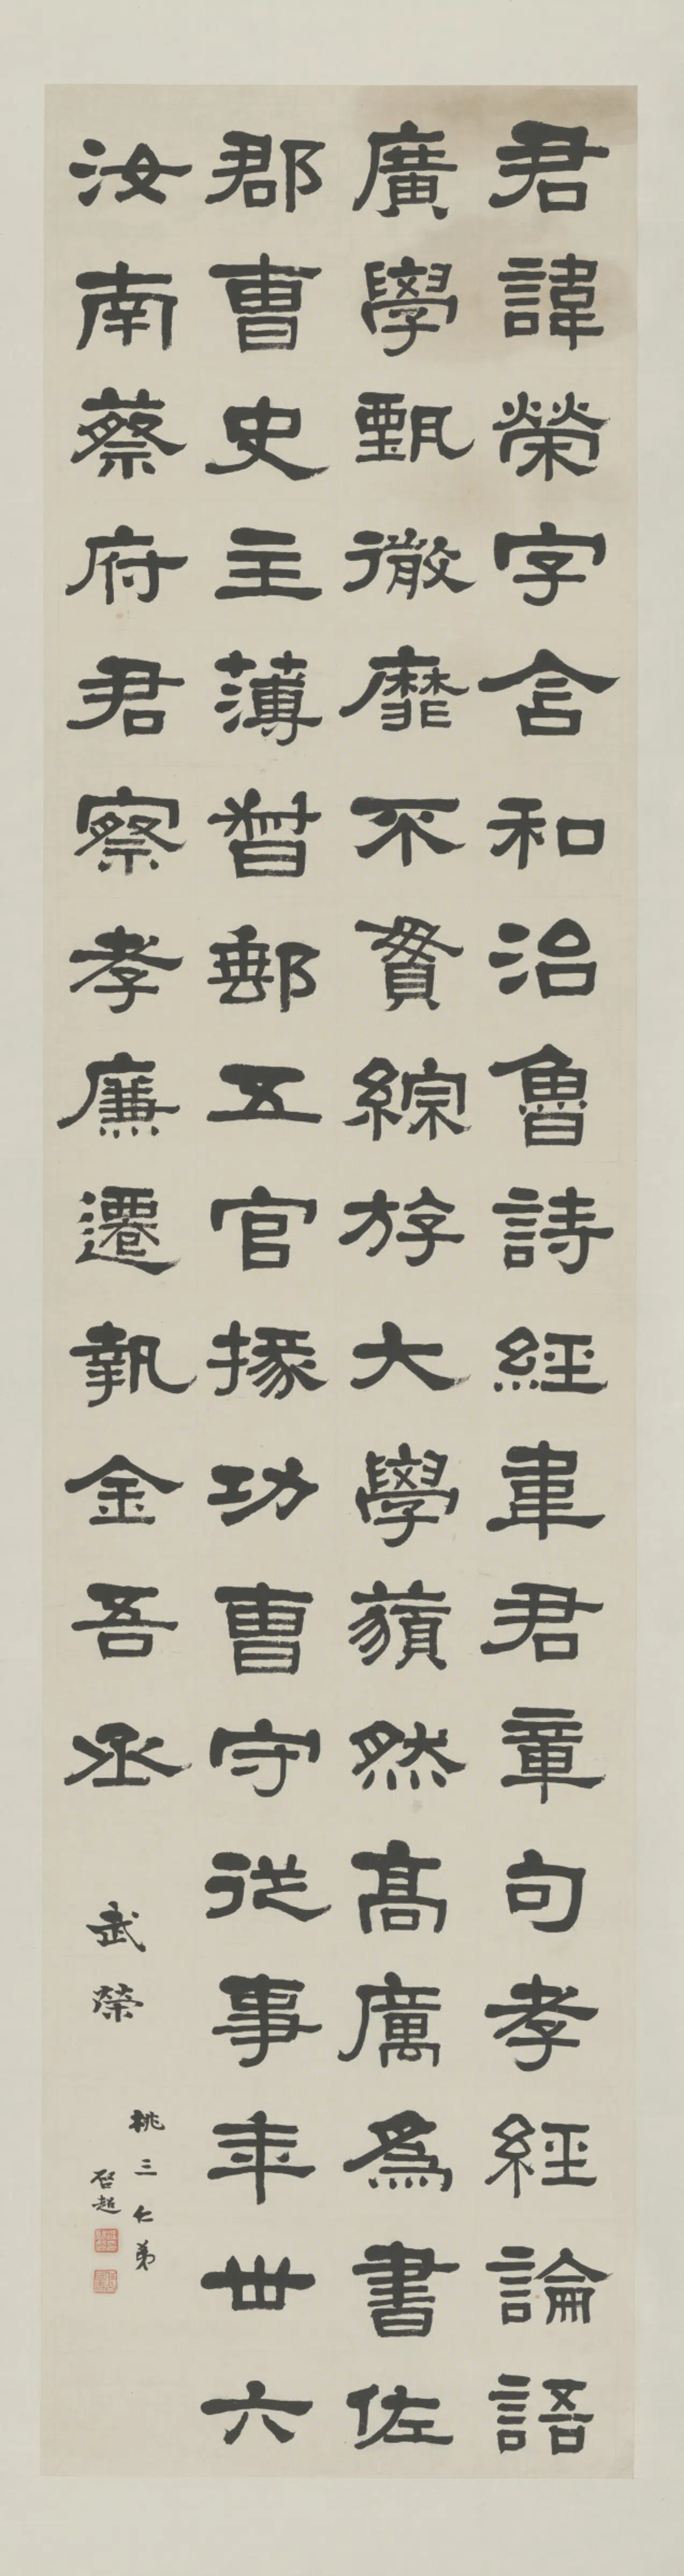 君諱榮字含和治魯詩經韋君章句孝經論語
廣學甄微靡不貫綜斿大學藐然高厲爲書佐
郡曹史主薄督郵五官掾功曹守從事年卅六
汝南蔡府君察孝廉遷執金吾丞
武榮
桃三仁弟
啓超